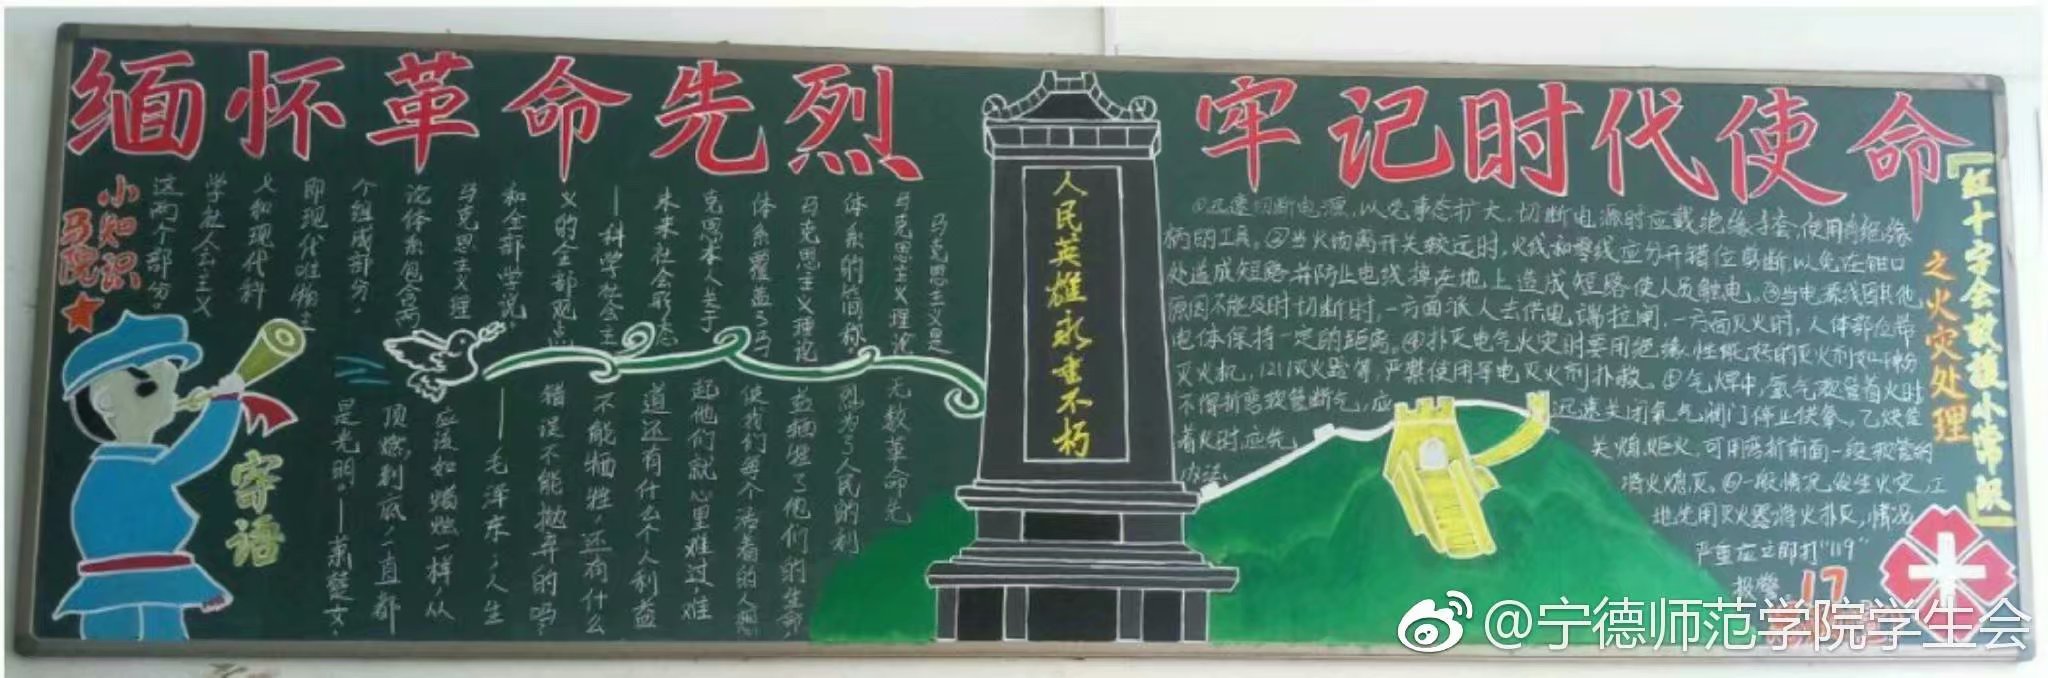 缅怀革命先烈 牢记时代使命
小知识
马院
马克思主义是
马克思主义理论
体系的简称。
马克思主义理论
体系覆盖了马
克思本人关于
未来社会形态
—科学社会主
义的全部观点
和全部学说。
马克思主义理
论体系包含两
个组成部分。
即现代唯物主
义和现代科
学社会主义
这两个部分。
寄语
无数革命先
烈为了人民的利
益牺牲了他们的生命
使我们每个活着的人想
起他们就心里难过,难
道还有什么个人利益
不能牺牲,还有什么
错误不能抛弃的吗?
——毛泽东,人生
应该如蜡烛一样,从
顶燃到底,一直都
是光明。—萧楚女。
人民英雄永垂不朽
「红十字会救援小常识」
之火灾处理
①迅速切断电源,以免事态扩大,切断电源时应戴绝缘手套,使用有绝缘
柄的工具。②当火场离开关较远时,火线和零线应分开错位剪断,以免在钳口
处造成短路并防止电线掉在地上造成短路使人员触电。③当电源线因其他
原因不能及时切断时,一方面派人去供电端拉闸,一方面灭火时,人体部位带
电体保持一定的距离。④扑灭电气火灾时要用绝缘性能好的灭火剂如干粉
灭火机,1211灭火器等,严禁使用导电灭火剂扑救。⑤气焊中,氢气软管着火时
不得折弯软管断气,应 迅速关闭氧气阀门停止供氧。乙炔管
着火时应先 关熄炬火,可用弯折前面一段软管的
办法 将火熄灭。⑥一般情况发生火灾,工
地先用灭火器将火扑灭,情况
严重应立即打“119”
报警。
17
@宁德师范学院学生会